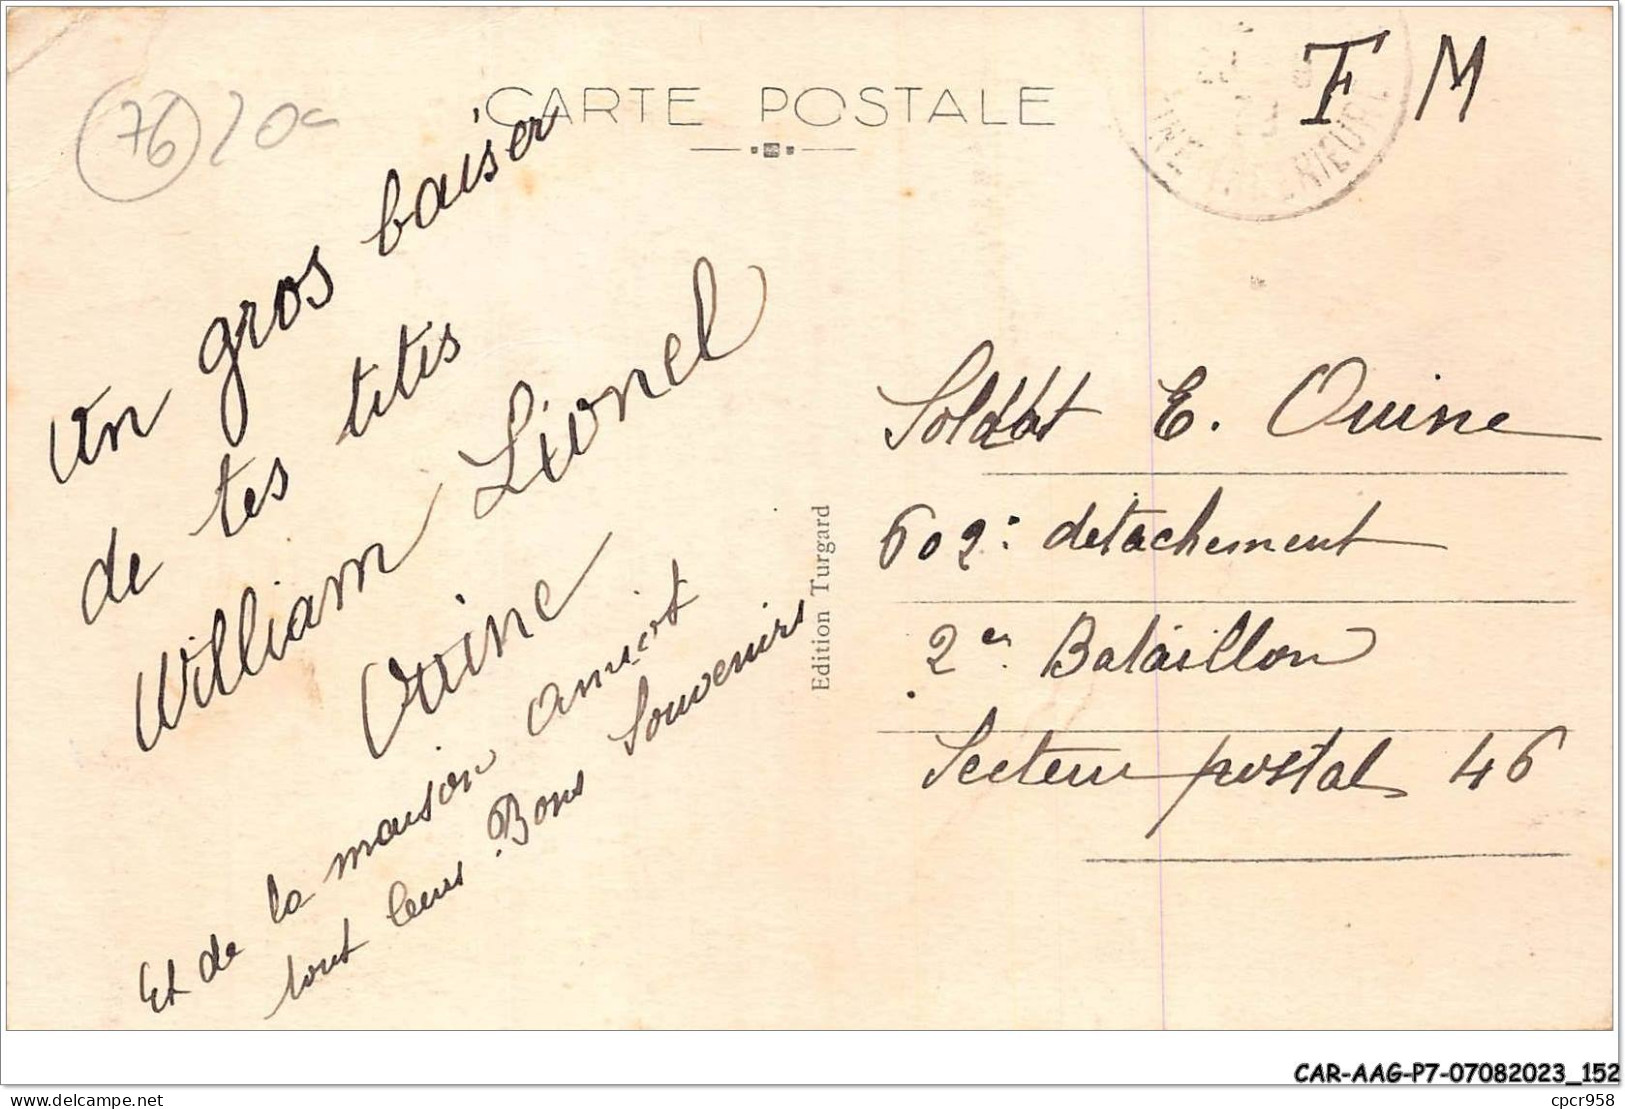 CARTE POSTALE
F M
INE INFERIEURE
76
20c
Un gros baiser
de tes titis
William Lionel
Ouine
Et de la maison amicot
tout leurs Bons Souvenirs
Edition Turgard
Soldat E. Ouine
602e détachement
2em Bataillon
Secteur postal 46
CAR-AAG-P7-07082023_152
delcampe.net
cpcr958